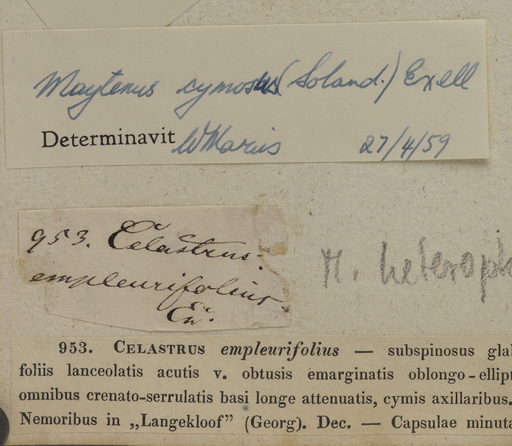 Maytenus cymosus (Soland.) Exell
Determinavit W Marais 27/4/59
953. Celastrus.
empleurifolius
M. heterop
953. CELASTRUS empleurifolius — subspinosus gla
foliis lanceolatis acutis v. obtusis emarginatis oblongo-ellipt
omnibus crenato-serrulatis basi longe attenuatis, cymis axillaribus.
Nemoribus in „Langekloof” (Georg). Dec. — Capsulae minuta